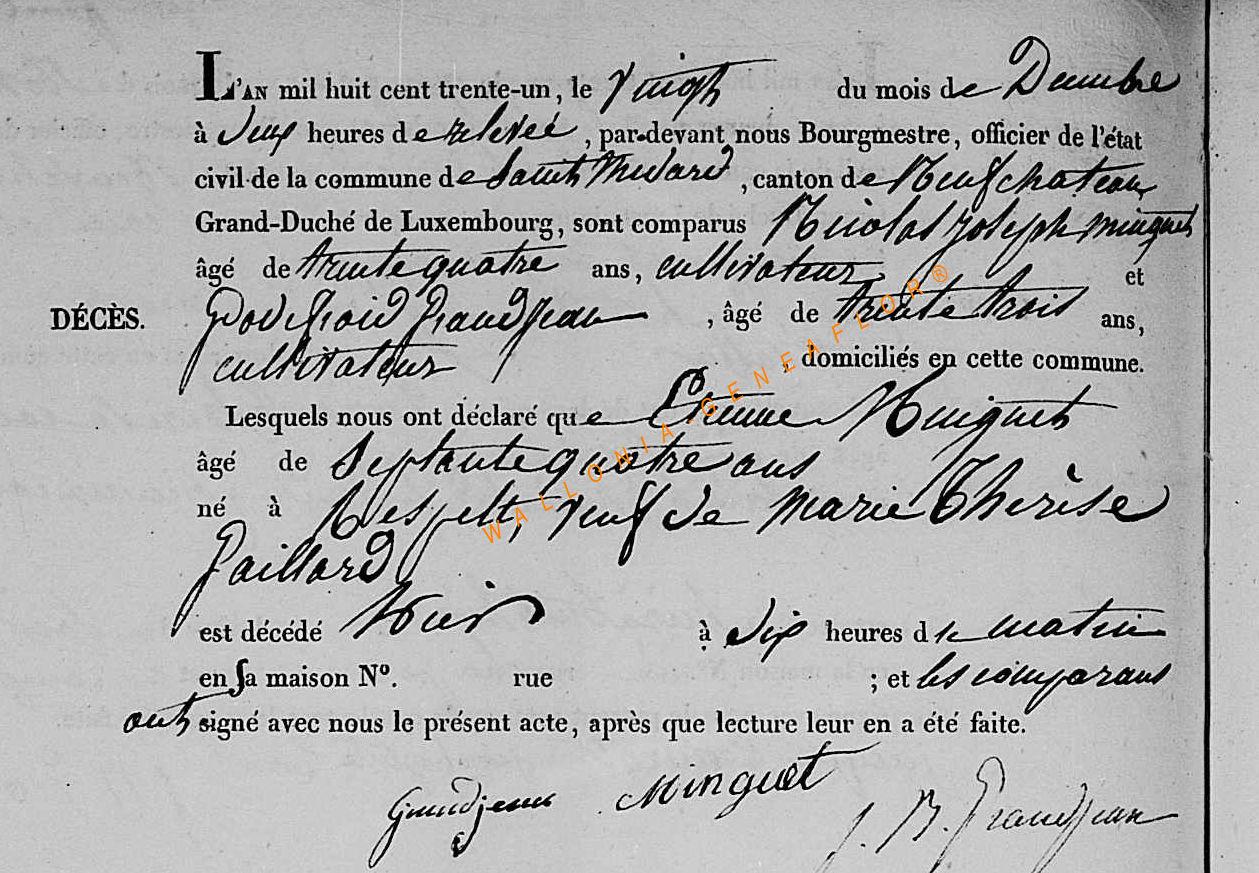 L'AN mil huit cent trente-un, le vingt du mois de Décembre
à deux heures de relevée, par-devant nous Bourgmestre, officier de l'état
civil de la commune de Saint Médard, canton de Neufchateau
Grand-Duché de Luxembourg, sont comparus Nicolas Joseph Minguet
âgé de trente quatre ans, cultivateur et
DÉCÈS. Godefroid Grandjean, âgé de trente trois ans,
cultivateur, domiciliés en cette commune.
Lesquels nous ont déclaré que Etienne Minguet
âgé de septante quatre ans
né à Respelt, veuf de Marie Thérèse
Gaillard
est décédé hier à six heures du matin
en sa maison N°. rue ; et les comparans
ont signé avec nous le présent acte, après que lecture leur en a été faite.
Grandjean Minguet J. B. Grandjean
WALLONIA GENEAFLOR®